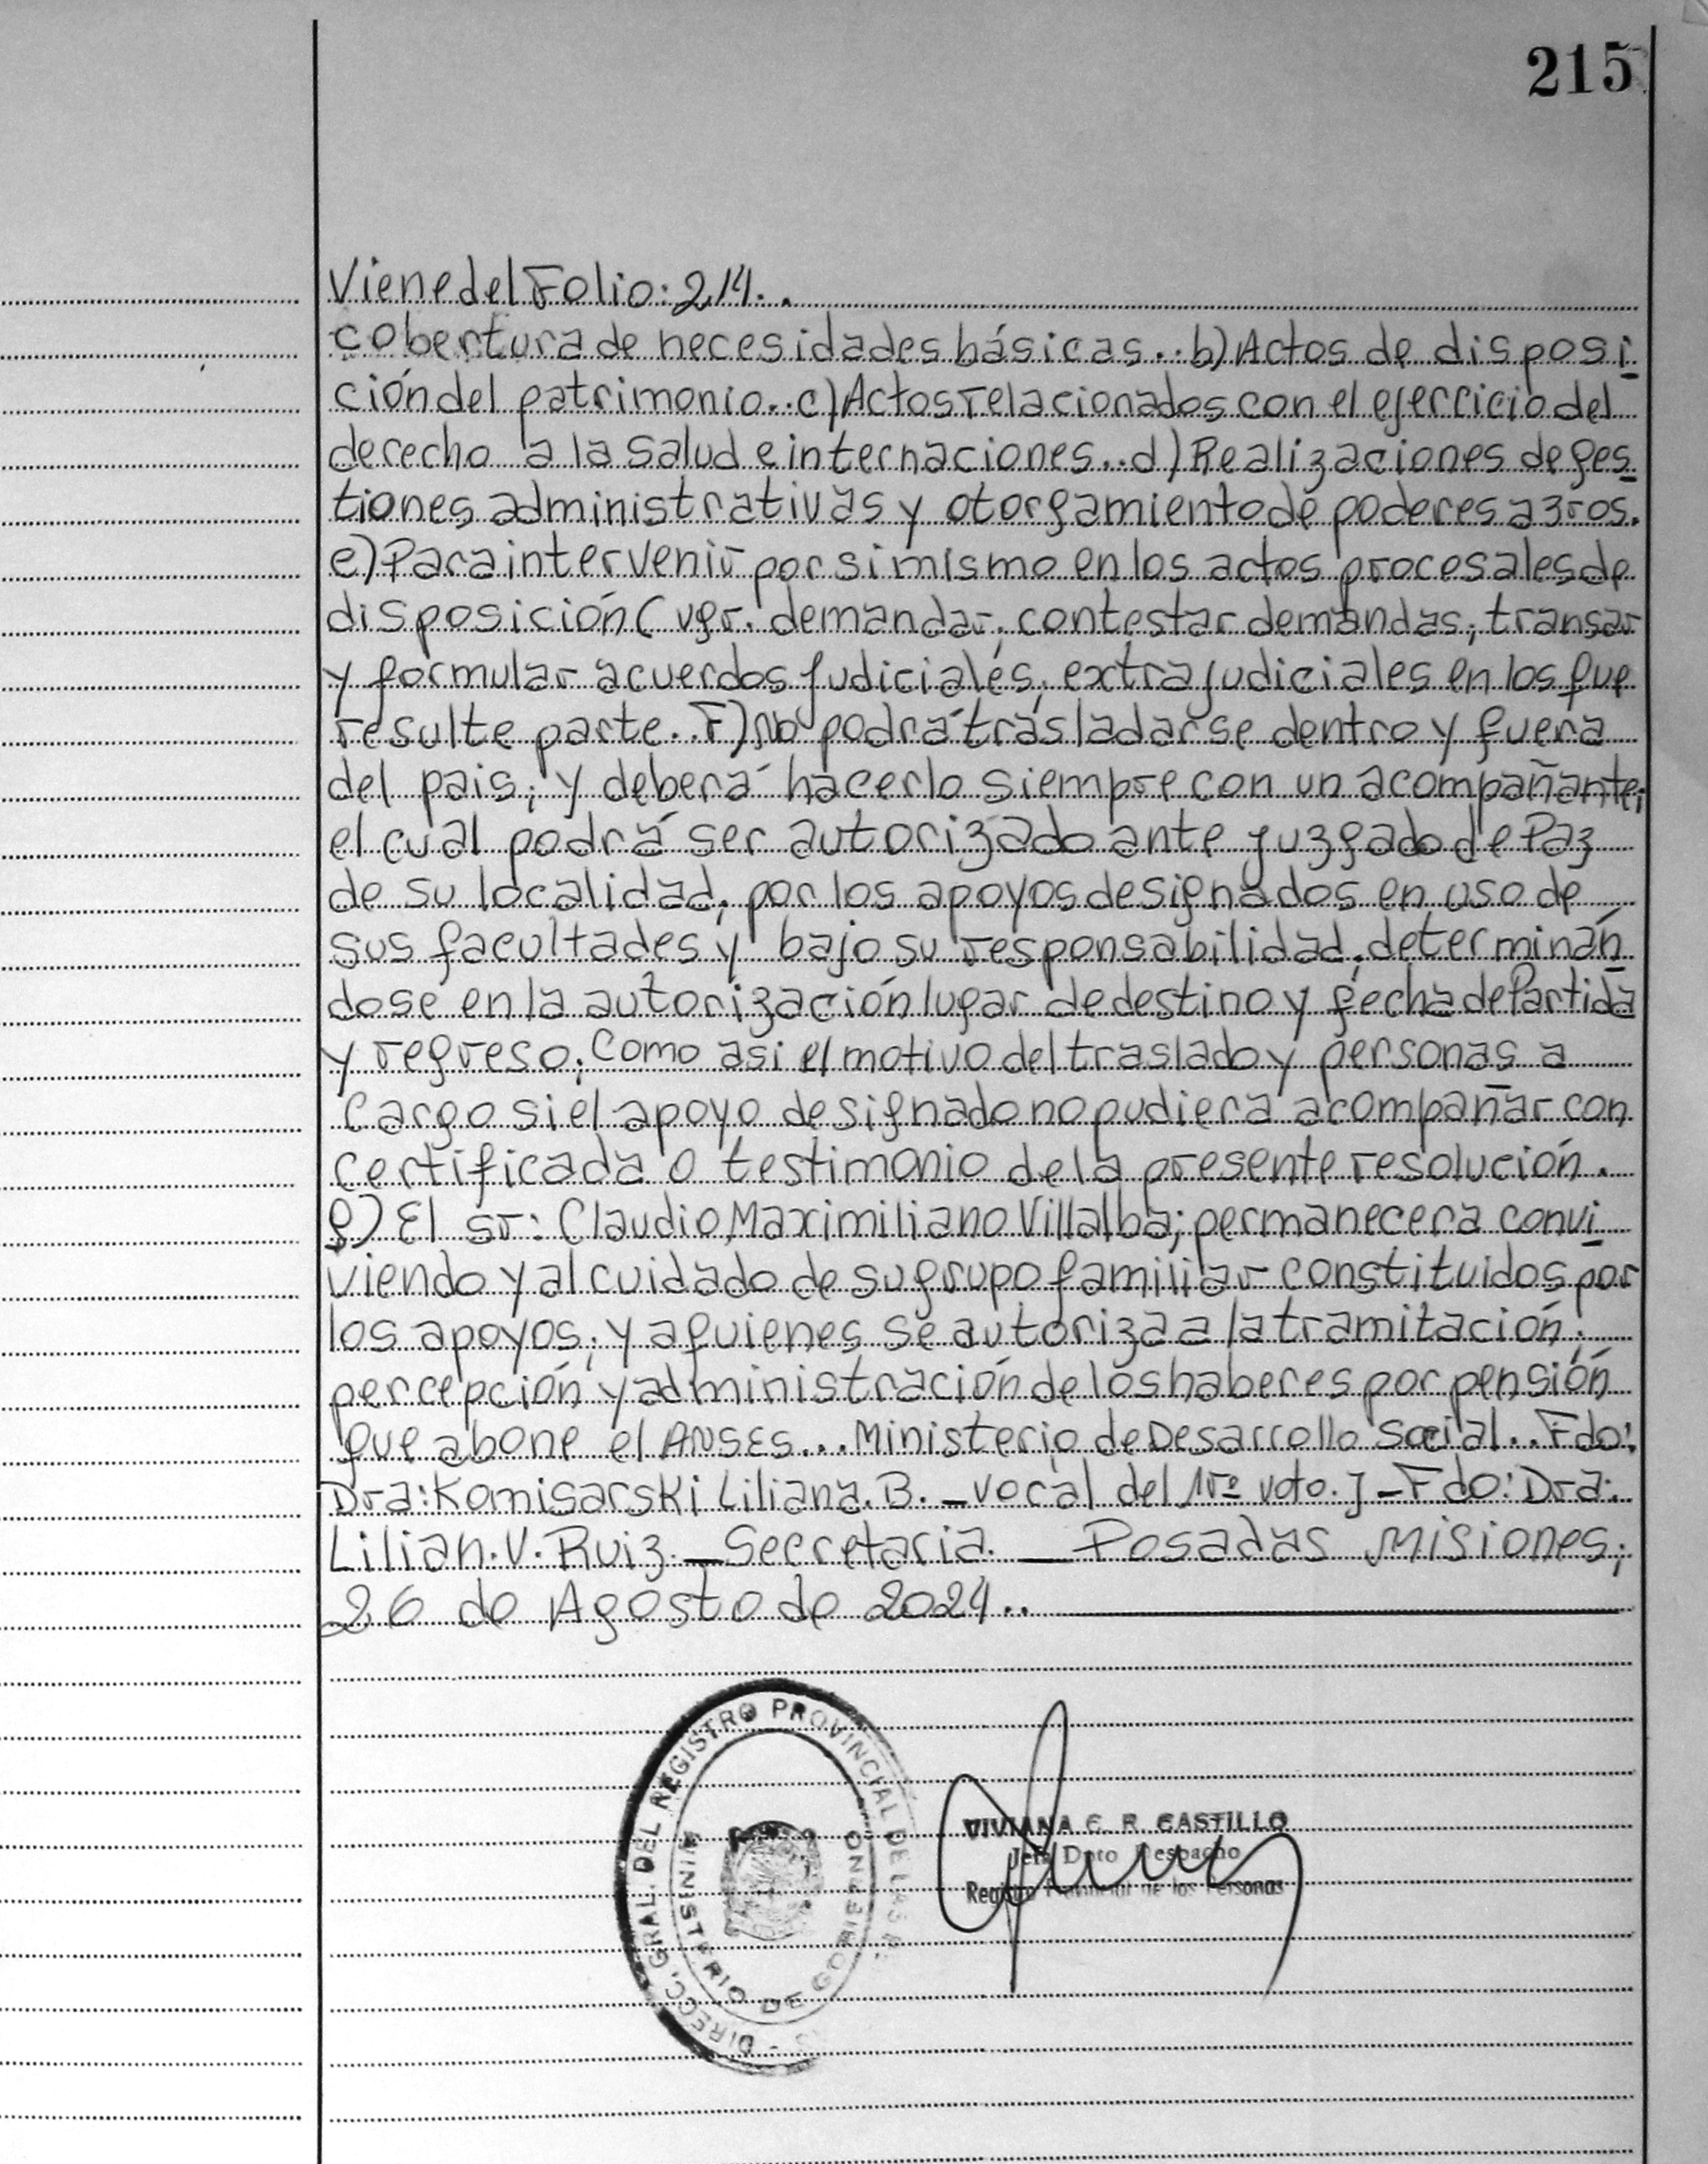 215
Viene del Folio: 214..
cobertura de necesidades básicas.. b) Actos de disposi
ción del patrimonio.. c) Actos relacionados con el ejercicio del
derecho a la salud e internaciones.. d) Realizaciones de ges
tiones administrativas y otorgamiento de poderes a 3ros.
e) Para intervenir por si mismo en los actos procesales de
disposición (vgr. demandar, contestar demandas, transar
y formular acuerdos judiciales, extrajudiciales en los que
resulte parte.. F) No podrá trasladarse dentro y fuera
del pais; y deberá hacerlo siempre con un acompañante;
el cual podrá ser autorizado ante juzgado de Paz
de su localidad; por los apoyos designados en uso de
sus facultades y bajo su responsabilidad; determinán
dose en la autorización lugar de destino y fecha de Partida
y regreso; Como asi el motivo del traslado y personas a
cargo si el apoyo designado no pudiera acompañar con
certificada o testimonio de la presente resolución.
g) El sr: Claudio, Maximiliano Villalba; permanecera convi
viendo y al cuidado de su grupo familiar constituidos por
los apoyos; y a quienes se autoriza a la tramitación;
percepción y administración de los haberes por pensión
que abone el ANSES... Ministerio de Desarrollo Social.. Fdo:
Dra: Komisarski Liliana. B. _ vocal del 1ro voto. ] _ Fdo: Dra:
Lilian. V. Ruiz. _ Secretaria. _ Posadas Misiones;
26 de Agosto de 2024..
DIRECC. GRAL. DEL REGISTRO PROVINCIAL DE LAS P.
MINISTERIO DE GOBIERNO
VIVIANA E. R. CASTILLO
Jefa Dpto Despacho
Registro Provincial de las Personas